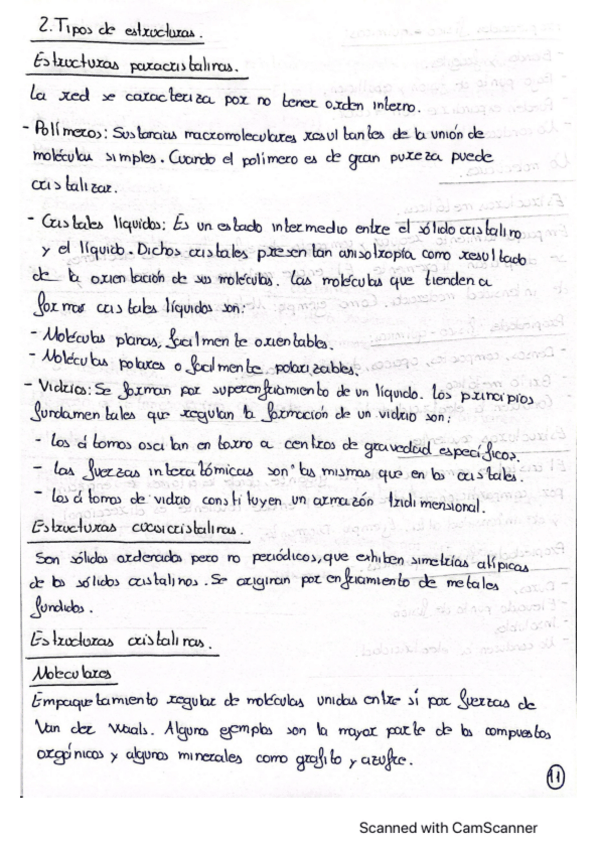 2. Tipos de estructuras.
Estructuras paracristalinas.
La red se caracteriza por no tener orden interno.
- Polímeros: Sustancias macromoleculares resultantes de la unión de
moléculas simples. Cuando el polímero es de gran pureza puede
cristalizar.
- Cristales líquidos: Es un estado intermedio entre el sólido cristalino
y el líquido. Dichos cristales presentan anisotropía como resultado
de la orientación de sus moléculas. Las moléculas que tienden a
formar cristales líquidos son:
- Moléculas planas, facilmente orientables.
- Moléculas polares o facilmente polarizables.
- Vidrios: Se forman por superenfriamiento de un líquido. Los principios
fundamentales que regulan la formación de un vidrio son:
- Los átomos oscilan en torno a centros de gravedad específicos.
- Las fuerzas interatómicas son las mismas que en los cristales.
- Los átomos de vidrio constituyen un armazón tridimensional.
Estructuras cuasicristalinas.
Son sólidos ordenados pero no periódicos, que exhiben simetrías atípicas
de los sólidos cristalinos. Se originan por enfriamiento de metales
fundidos.
Estructuras cristalinas.
Moleculares
Empaquetamiento regular de moléculas unidas entre sí por fuerzas de
Van der Waals. Algunos ejemplos son la mayor parte de los compuestos
orgánicos y algunos minerales como grafito y azufre.
11
Scanned with CamScanner